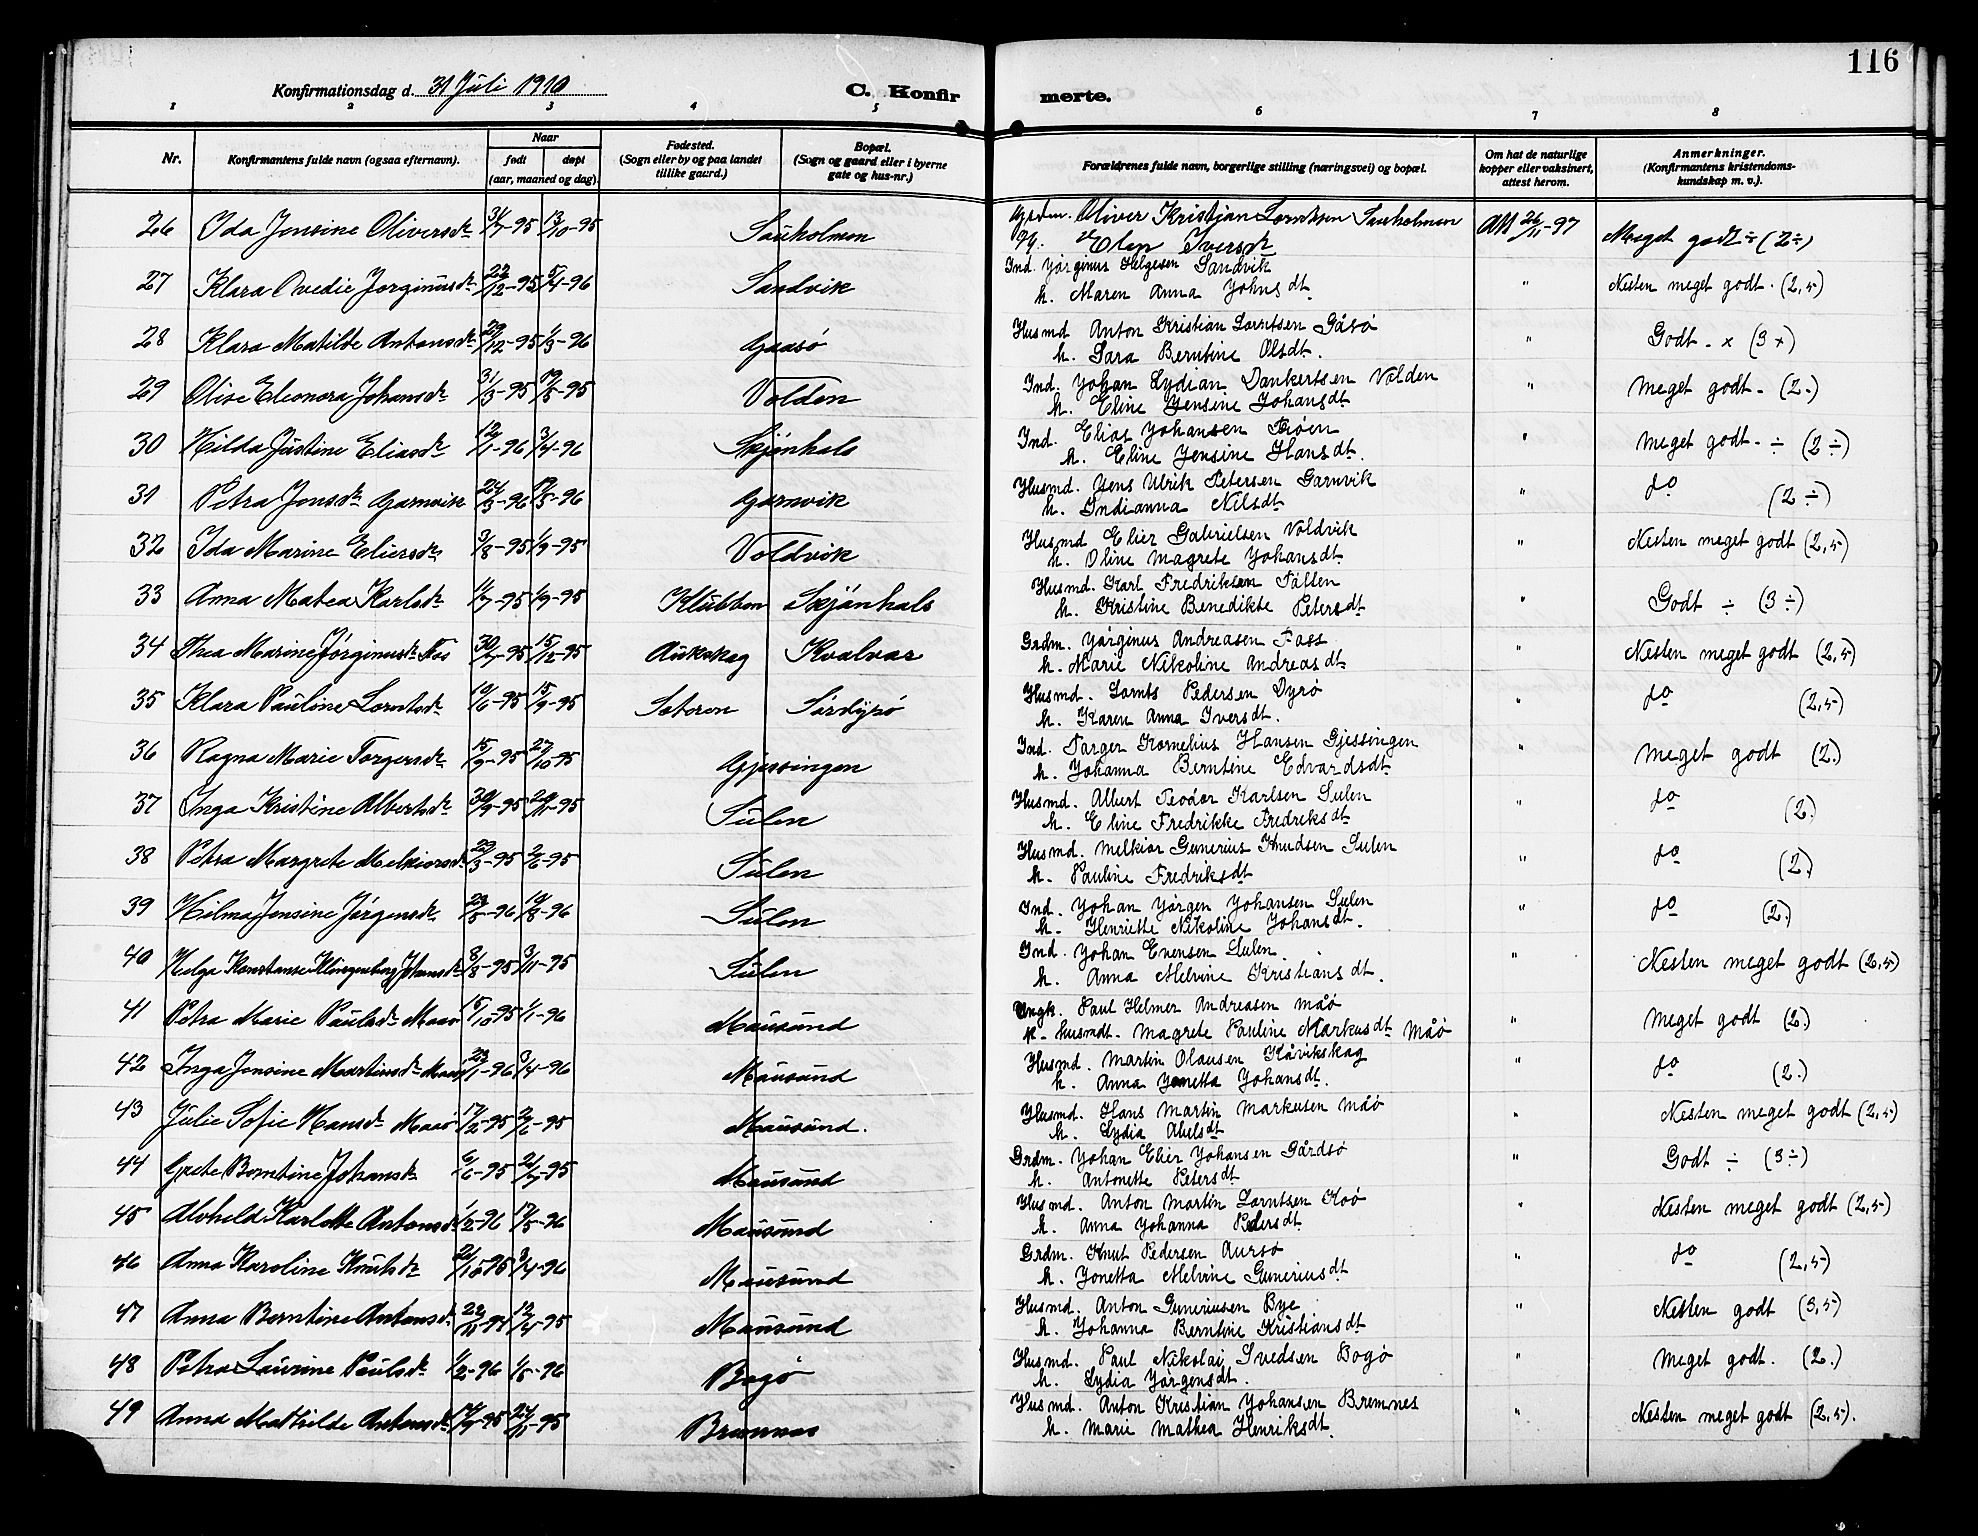 116
Konfirmationsdag d. 31 Juli 1910
C. Konfirmerte.
1 2 3 4 5 6 7 8
Nr.
Konfirmantens fulde navn (ogsaa efternavn).
Naar
født døpt
(aar, maaned og dag).
Fødested.
(Sogn eller by og paa landet
tillike gaard.)
Bopæl.
(Sogn og gaard eller i byerne
gate og hus-nr.)
Forældrenes fulde navn, borgerlige stilling (næringsvei) og bopæl.
Om hat de naturlige
kopper eller vaksinert,
attest herom.
Anmerkninger.
(Konfirmantens kristendoms-
kundskap m. v.).
26 Ida Jensine Oliversdr 31/7-95 13/10-95 Sauholmen Oliver Kristjan Lorntsen Sauholmen 26/11-97 Meget godt ÷ (2÷)
Elen Iversdr
27 Klara Ovedie Jørginusdr 22/12-95 5/4-96 Sandvik Ind. Jørginus Helgesen Sandvik " Nesten meget godt. (2,5)
h. Maren Anna Johnsdt
28 Klara Matilde Antonsdr 29/12-95 1/3-96 Gaasø Husmd Anton Kristian Lorntsen Gåsø " Godt - x (3+)
h. Sara Berntine Olsdt.
29 Olise Eleonora Johansdr 31/3-95 19/5-95 Volden Ind. Johan Lydian Dankertsen Volden " Meget godt - (2.)
h. Eline Jensine Johansdt
30 Hilda Justine Eliasdr 12/1-96 3/4-96 Skjønhals Ind. Elias Johansen " Meget godt - ÷ (2÷)
h. Eline Jensine Hansdt.
31 Petra Jensdr Garnvik 24/3-96 17/5-96 Garnvik Husmd. Jens Ulrik Petersen Garnvik " do (2÷)
h. Indianna Nilsdt
32 Ida Marine Eliersdr 3/8-95 1/9-95 Voldvik Husmd Elier Gabrielsen Voldvik " Nesten meget godt (2,5)
h. Oline Magrete Johansdt
33 Anna Matea Karlsdr 4/7-95 1/9-95 Klubben Skjønhals Husmd. Karl Fredriksen Fåtten " Godt ÷ (3÷)
h. Kristine Benedikte Petersdt
34 Thea Marine Jørginusdr Fos 30/7-95 15/12-95 Aukskag Kvalvær Grdm. Jørginus Andreasen Foss " Nesten meget godt (2,5)
h. Marie Nikoline Andreasdt
35 Klara Pauline Lorntsdr 19/6-95 15/9-95 Seteren Sørdyrø Husmd. Lornts Pedersen Dyrø " do (2,5)
h. Karen Anna Iversdt.
36 Ragna Marie Torgersdr 15/9-95 27/10-95 Gjessingen Ind. Torger Kornelius Hansen Gjessingen " Meget godt (2.)
h. Johanna Berntine Edvardsdt
37 Inga Kristine Albertsdr 30/9-95 24/11-95 Sulen Husmd. Albert Teodor Karlsen Sulen " do (2.)
h. Eline Fredrikke Fredriksdt
38 Petra Margrete Melkiorsdr 29/3-95 2/6-95 Sulen Husmd. Melkior Gunerius Knudsen Sulen " do (2.)
h. Pauline Fredriksdt
39 Hilma Jensine Jørgensdr 23/5-96 19/8-96 Sulen Ind. Johan Jørgen Johansen Sulen " do (2.)
h. Henriette Nikoline Johansdt.
40 Helga Konstanse Klingenberg Johansdr 8/8-95 3/11-95 Sulen Ind. Johan Evensen Sulen. " Nesten meget godt (2,5)
h. Anna Melvine Kristiansdt.
41 Petra Marie Paulsdr Maaø 15/10-95 1/1-96 Mausund Ungk. Paul Helmer Andreasen Måø " Meget godt (2.)
Husmdt. Magrete Pauline Markusdt Måø
42 Inga Jensine Martinusdr 23/1-96 3/4-96 Mausund Husmd. Martin Olausen Kåvikskag " do (2.)
h. Anna Jonetta Johansdt.
43 Julie Sofie Hansdr Maaø 17/2-95 2/6-95 Mausund. Husmd. Hans Martin Markusen Måø " Nesten meget godt (2,5)
h. Lydia Abelsdt
44 Grete Berntine Johansdr 6/6-95 21/7-95 Mausund Grdm. Johan Elier Johansen Gårdsø " Godt ÷ (3÷)
h. Antonette Petersdt
45 Alvheld Karlotte Antonsdr 1/2-96 17/5-96 Mausund Husmd. Anton Martin Lorntsen Koø " Nesten meget godt (2,5)
h. Anna Johanna Pedersdt
46 Anna Karoline Knutsdr 21/10-95 3/4-96 Mausund Grdm. Knut Pedersen Aursø " do (2,5)
h. Jonetta Melvine Guneriusdt
47 Anna Berntine Antonsdr 22/11-94 12/4-95 Mausund Husmd. Anton Guneriusen Bye " Nesten godt (3,5)
h. Johanna Berntine Kristiansdt
48 Petra Laurine Paulsdr 1/2-96 1/5-96 Bogø Husmd. Paul Nikolai Svedsen Bogø " Meget godt. (2.)
h. Lydia Jørgensdt.
49 Anna Mathilde Antonsdr 14/9-95 24/11-95 Bremnes Husmd. Anton Kristian Johansen Bremnes " Nesten meget godt (2,5).
h. Marie Mathea Henriksdt.